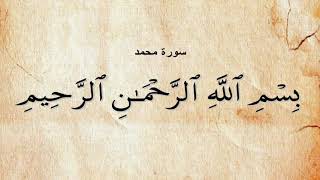 سورة محمد
بِسْمِ ٱللَّهِ ٱلرَّحْمَٰنِ ٱلرَّحِيمِ